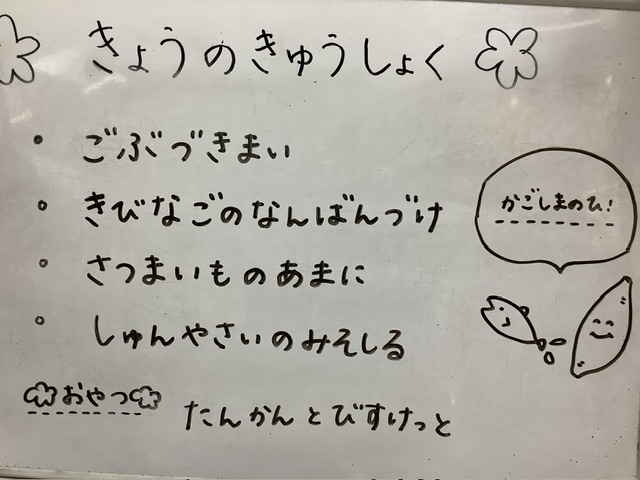 きょうのきゅうしょく
・ごぶづきまい
・きびなごのなんばんづけ
かごしまのひ!
・さつまいものあまに
・しゅんやさいのみそしる
おやつ
たんかんとびすけっと